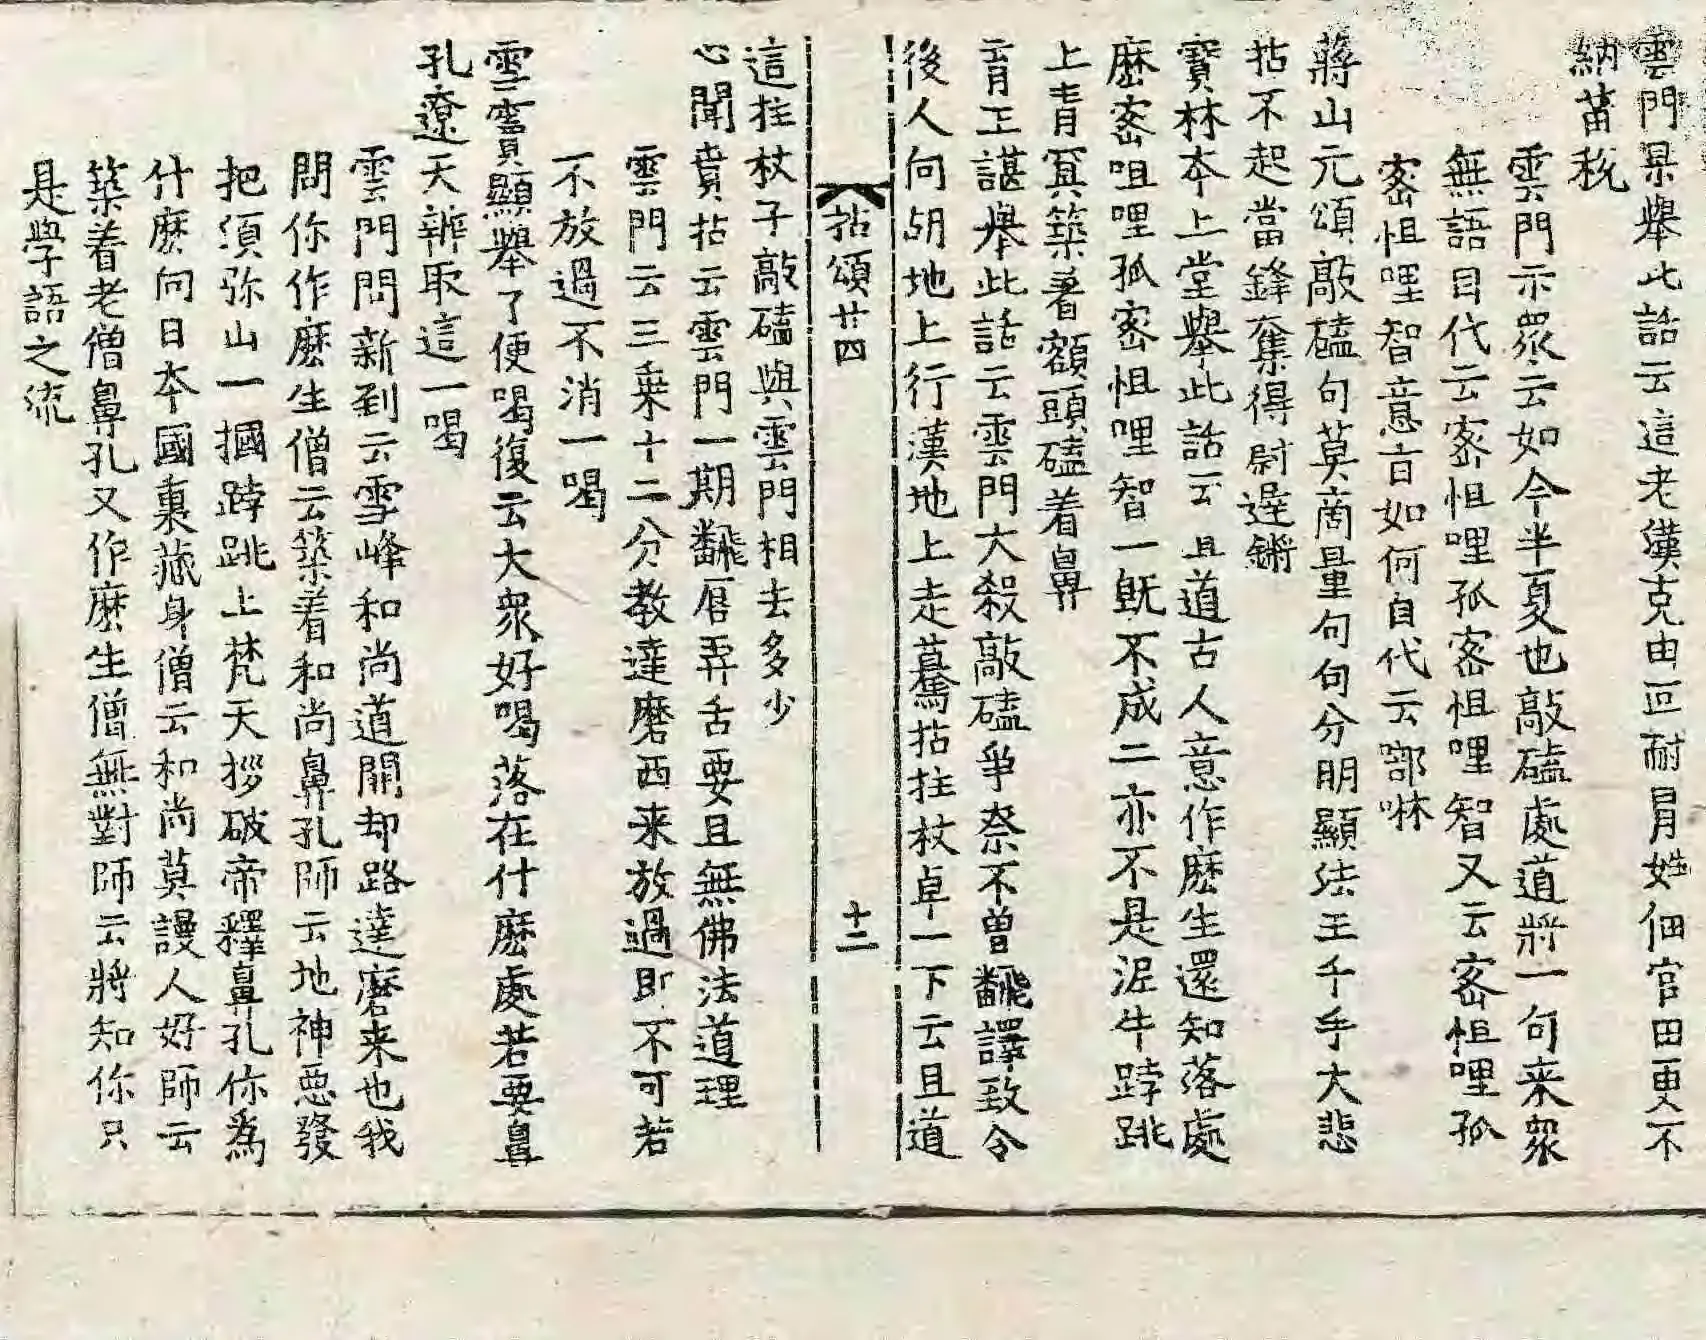 雲門杲舉此話云這老漢克由叵耐冐姓佃官田更不
納苗税
雲門示眾云如今半夏也敲磕處道將一句来眾
無語自代云宻怛哩孤宻怛哩智又云宻怛哩孤
宻怛哩智意旨如何自代云㗶㖿
蔣山元頌敲磕句莫啇量句句分明顯法王千手大悲
拈不起當鋒奪得尉遅鏘
寳林本上堂舉此話云且道古人意作麽生還知落處
麽宻咀哩孤宻怛哩智一旣不成二亦不是泥牛𨁝跳
上青冥築著額頭磕着鼻
育王諶舉此話云雲門大殺敲磕爭奈不曽飜譯致令
後人向胡地上行漢地上走驀拈拄杖卓一下云且道
拈頌廿四 十二
這拄杖子敲磕與雲門相去多少
心聞賁拈云雲門一期飜唇弄舌要且無佛法道理
雲門云三乗十二分教達磨西来放過即不可若
不放過不消一喝
雪竇顯舉了便喝復云大眾好喝落在什麽處若要鼻
孔遼天辨取這一喝
雲門問新到云雪峰和尚道開却路達磨来也我
問你作麽生僧云築着和尚鼻孔師云地神惡發
把須弥山一摑𨁝跳上梵天拶破帝釋鼻孔你為
什麽向日本國裏藏身僧云和尚莫謾人好師云
築着老僧鼻孔又作麽生僧無對師云將知你只
是學語之流